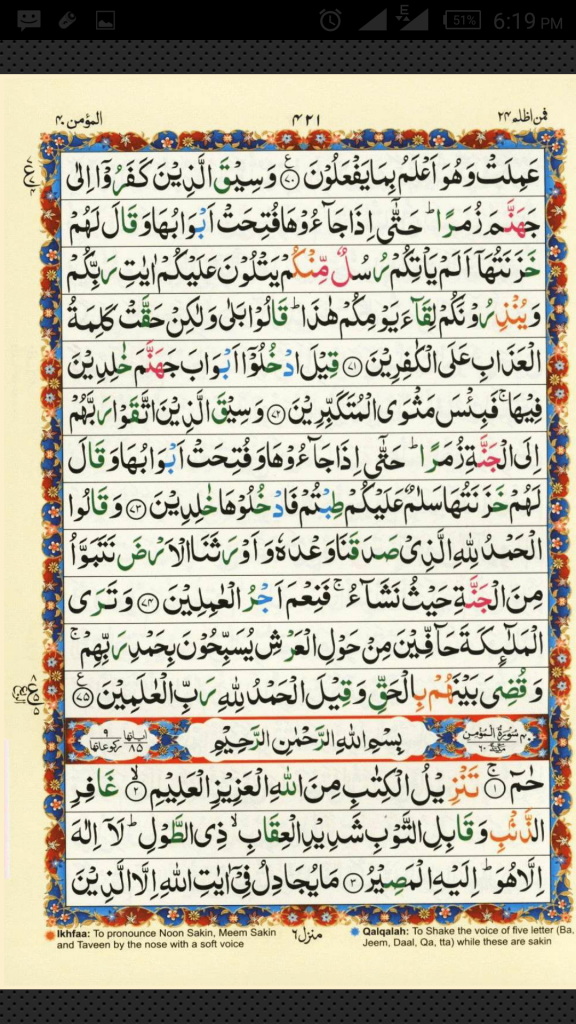 51% 6:19 PM
E
المؤمن ۴۰
۴۲۱
فمن اظلم ۲۴
عَمِلَتْ وَهُوَ اَعْلَمُ بِمَا يَفْعَلُوْنَ ﴿۷۰﴾ وَسِيْقَ الَّذِيْنَ كَفَرُوْٓا اِلٰى
جَهَنَّمَ زُمَرًا ؕ حَتّٰٓى اِذَا جَآءُوْهَا فُتِحَتْ اَبْوَابُهَا وَقَالَ لَهُمْ
خَزَنَتُهَآ اَلَمْ يَاْتِكُمْ رُسُلٌ مِّنْكُمْ يَتْلُوْنَ عَلَيْكُمْ اٰيٰتِ رَبِّكُمْ
وَيُنْذِرُوْنَكُمْ لِقَآءَ يَوْمِكُمْ هٰذَا ؕ قَالُوْا بَلٰى وَلٰكِنْ حَقَّتْ كَلِمَةُ
الْعَذَابِ عَلَى الْكٰفِرِيْنَ ﴿۷۱﴾ قِيْلَ ادْخُلُوْٓا اَبْوَابَ جَهَنَّمَ خٰلِدِيْنَ
فِيْهَا ۚ فَبِئْسَ مَثْوَى الْمُتَكَبِّرِيْنَ ﴿۷۲﴾ وَسِيْقَ الَّذِيْنَ اتَّقَوْا رَبَّهُمْ
اِلَى الْجَنَّةِ زُمَرًا ؕ حَتّٰٓى اِذَا جَآءُوْهَا وَفُتِحَتْ اَبْوَابُهَا وَقَالَ
لَهُمْ خَزَنَتُهَا سَلٰمٌ عَلَيْكُمْ طِبْتُمْ فَادْخُلُوْهَا خٰلِدِيْنَ ﴿۷۳﴾ وَقَالُوا
الْحَمْدُ لِلّٰهِ الَّذِيْ صَدَقَنَا وَعْدَهٗ وَاَوْرَثَنَا الْاَرْضَ نَتَبَوَّاُ
مِنَ الْجَنَّةِ حَيْثُ نَشَآءُ ۚ فَنِعْمَ اَجْرُ الْعٰمِلِيْنَ ﴿۷۴﴾ وَتَرَى
الْمَلٰٓئِكَةَ حَآفِّيْنَ مِنْ حَوْلِ الْعَرْشِ يُسَبِّحُوْنَ بِحَمْدِ رَبِّهِمْ ۚ
وَقُضِيَ بَيْنَهُمْ بِالْحَقِّ وَقِيْلَ الْحَمْدُ لِلّٰهِ رَبِّ الْعٰلَمِيْنَ ﴿۷۵﴾
سُوْرَةُ الْمُؤْمِنِ
بِسْمِ اللّٰهِ الرَّحْمٰنِ الرَّحِيْمِ
اٰيَاتُهَا ۸۵ رُكُوْعَاتُهَا ۹
حٰمٓ ۚ﴿۱﴾ تَنْزِيْلُ الْكِتٰبِ مِنَ اللّٰهِ الْعَزِيْزِ الْعَلِيْمِ ۙ﴿۲﴾ غَافِرِ
الذَّنْۢبِ وَقَابِلِ التَّوْبِ شَدِيْدِ الْعِقَابِ ۙ ذِي الطَّوْلِ ؕ لَآ اِلٰهَ
اِلَّا هُوَ ؕ اِلَيْهِ الْمَصِيْرُ ﴿۳﴾ مَا يُجَادِلُ فِيْٓ اٰيٰتِ اللّٰهِ اِلَّا الَّذِيْنَ
Ikhfaa: To pronounce Noon Sakin, Meem Sakin
and Taveen by the nose with a soft voice
منزل ۶
Qalqalah: To Shake the voice of five letter (Ba,
Jeem, Daal, Qa, tta) while these are sakin